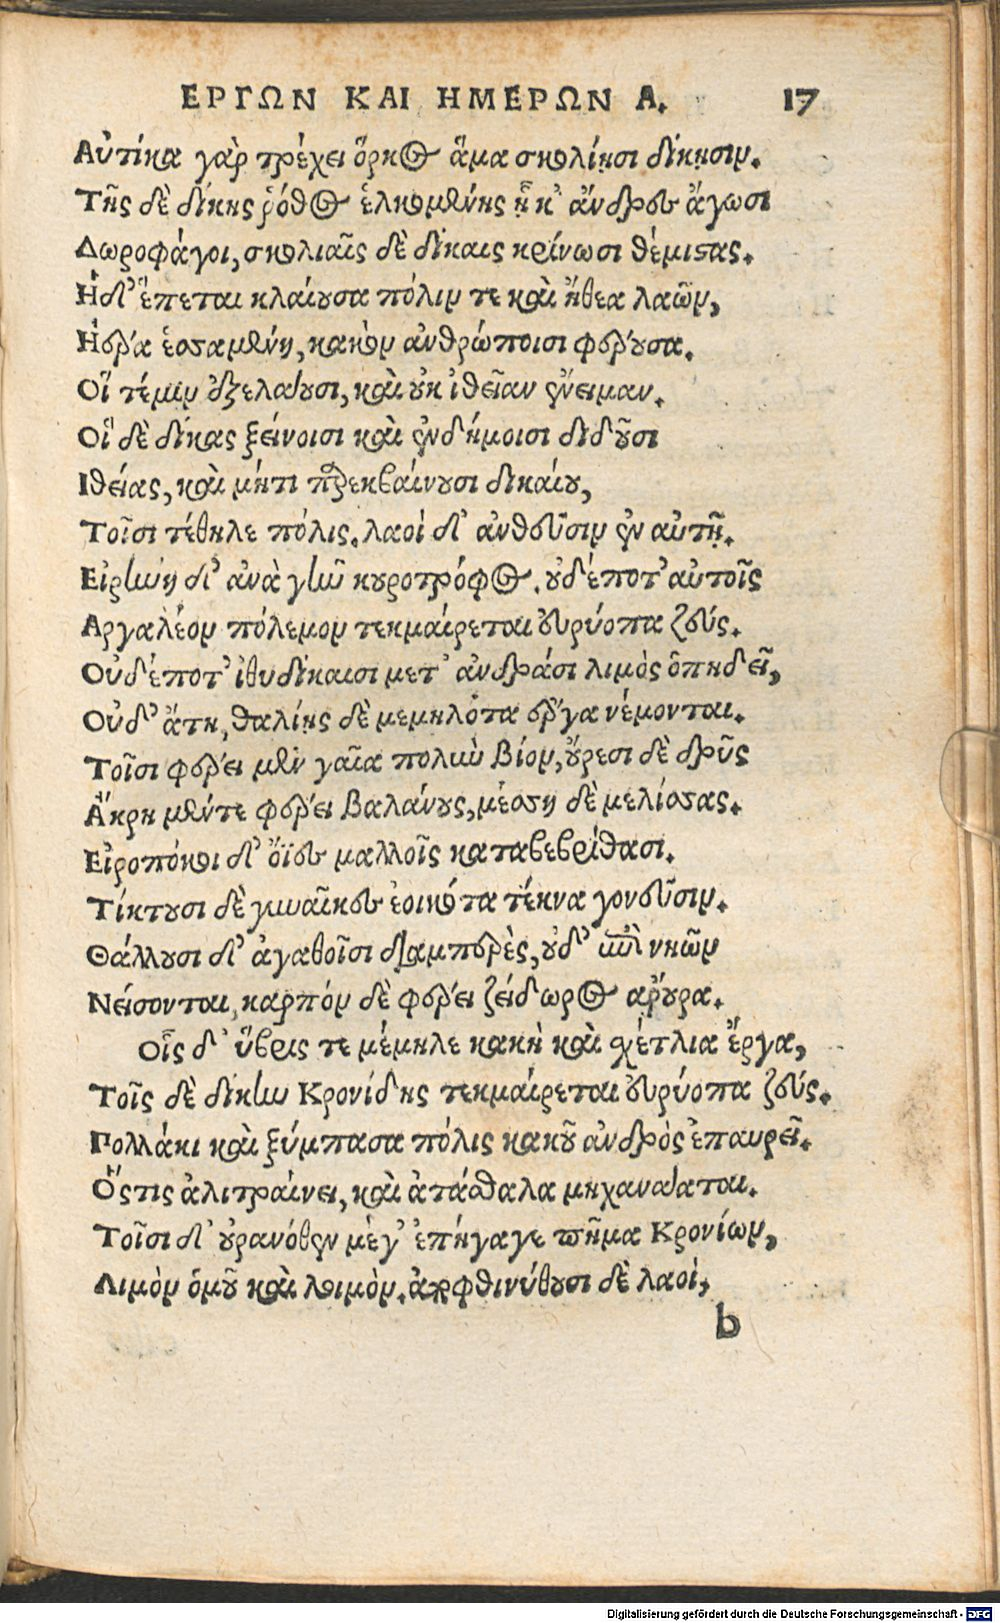 ΕΡΓΩΝ ΚΑΙ ΗΜΕΡΩΝ Α. 17
Αὐτίκα γὰρ τρέχει ὅρκος ἅμα σκολίῃσι δίκῃσιν.
Τῆς δὲ δίκης ῥόθος ἑλκομένης ᾗ κ' ἄνδρες ἄγωσι
Δωροφάγοι, σκολιαῖς δὲ δίκαις κρίνωσι θέμιστας.
Ηδ' ἕπεται κλαίουσα πόλιν τε καὶ ἤθεα λαῶν,
Ηέρα ἑσσαμένη, κακὸν ἀνθρώποισι φέρουσα.
Οἵ τέ μιν ἐξελάουσι, καὶ οὐκ ἰθεῖαν ἔνειμαν.
Οἳ δὲ δίκας ξείνοισι καὶ ἐνδήμοισι διδοῦσι
Ιθείας, καὶ μήτι παρεκβαίνουσι δικαίου,
Τοῖσι τέθηλε πόλις. λαοὶ δ' ἀνθεῦσιν ἐν αὐτῇ.
Εἰρήνη δ' ἀνὰ γῆν κουροτρόφος. οὐδέποτ' αὐτοῖς
Αργαλέον πόλεμον τεκμαίρεται εὐρύοπα ζεύς.
Οὐδέποτ' ἰθυδίκαισι μετ' ἀνδράσι λιμὸς ὀπηδεῖ,
Οὐδ' ἄτη, θαλίῃς δὲ μεμηλότα ἔργα νέμονται.
Τοῖσι φέρει μὲν γαῖα πολὺν βίον, οὔρεσι δὲ δρῦς
Ἄκρη μέντε φέρει βαλάνους, μέσση δὲ μελίσσας.
Εἰροπόκοι δ' ὄϊες μαλλοῖς καταβεβρίθασι.
Τίκτουσι δὲ γυναῖκες ἐοικότα τέκνα γονεῦσιν.
Θάλλουσι δ' ἀγαθοῖσι διαμπερὲς, οὐδ' ἐπὶ νηῶν
Νείσονται, καρπὸν δὲ φέρει ζείδωρος ἄρουρα.
Οἷς δ' ὕβρις τε μέμηλε κακὴ καὶ σχέτλια ἔργα,
Τοῖς δὲ δίκην Κρονίδης τεκμαίρεται εὐρύοπα ζεύς.
Πολλάκι καὶ ξύμπασα πόλις κακοῦ ἀνδρὸς ἐπαυρεῖ.
Ὅςτις ἀλιτραίνει, καὶ ἀτάσθαλα μηχανάαται.
Τοῖσι δ' οὐρανόθεν μέγ' ἐπήγαγε πῆμα Κρονίων,
Λιμὸν ὁμοῦ καὶ λοιμὸν. ἀποφθινύθουσι δὲ λαοὶ,
b
Digitalisierung gefördert durch die Deutsche Forschungsgemeinschaft - DFG